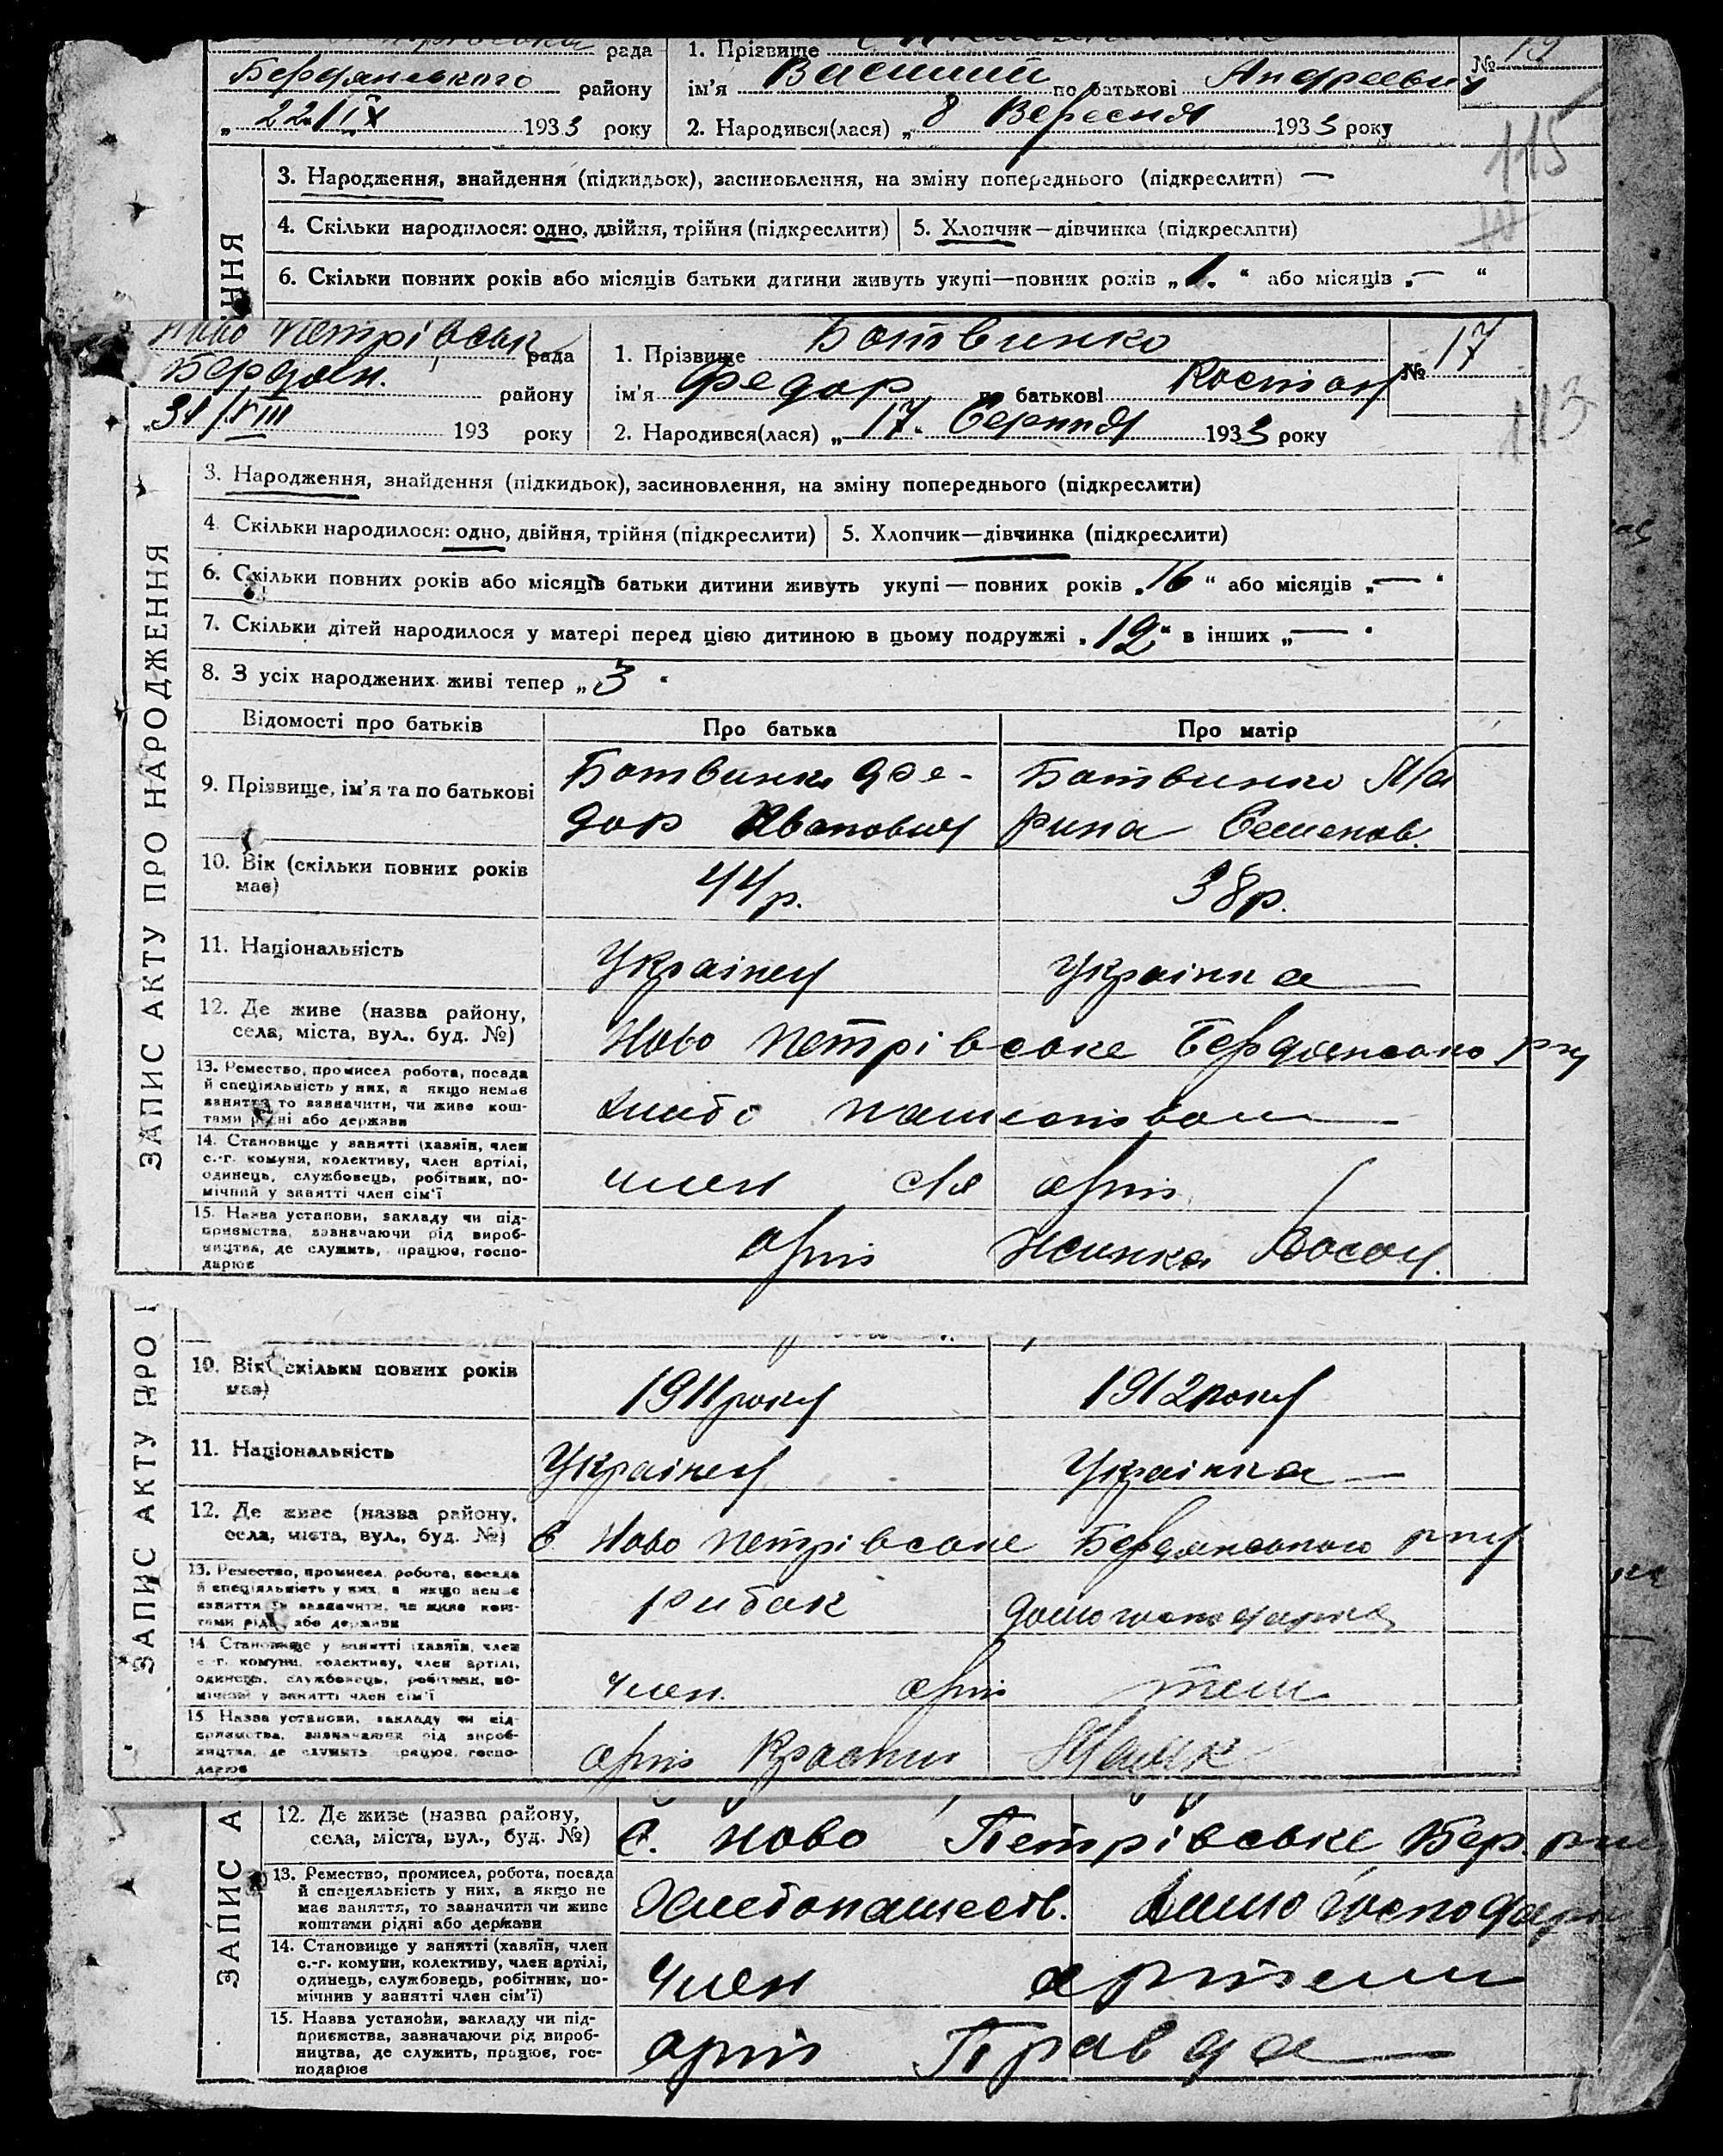 рада
Бердянського району
„ 22/IX 1933 року
1. Прізвище
ім'я Василий по батькові Андреевич
2. Народився(лася) „ 8 Вересня 1933 року
№ 19
115
3. Народження, знайдення (підкидьок), засиновлення, на зміну попереднього (підкреслити) —
4. Скільки народилося: одно, двійня, трійня (підкреслити) 5. Хлопчик—дівчинка (підкреслити)
6. Скільки повних років або місяців батьки дитини живуть укупі—повних років „ 1. “ або місяців „ — “
ННЯ
Ново Петрівськ рада
Бердян. району
„ 31/VIII 193 року
1. Прізвище Ботвинко
ім'я Федор по батькові
2. Народився(лася) „ 17. Серпня 1933 року
№ 17
113
ЗАПИС АКТУ ПРО НАРОДЖЕННЯ
3. Народження, знайдення (підкидьок), засиновлення, на зміну попереднього (підкреслити)
4. Скільки народилося: одно, двійня, трійня (підкреслити) 5. Хлопчик—дівчинка (підкреслити)
6. Скільки повних років або місяців батьки дитини живуть укупі — повних років „ 16 “ або місяців „ — “
7. Скільки дітей народилося у матері перед цією дитиною в цьому подружжі „ 12 “ в інших „ — “
8. З усіх народжених живі тепер „ 3 “
Відомості про батьків Про батька Про матір
9. Прізвище, ім'я та по батькові
Ботвинко Фе-
дор Иванович
Ботвинко Ма
рина Семенов.
10. Вік (скільки повних років
має)
44 р. 38 р.
11. Національність Українец Українка
12. Де живе (назва району,
села, міста, вул., буд. №)
Ново Петрівське Бердянсько р-ну
13. Ремество, промисел робота, посада
й спеціяльність у них, а якщо немає
заняття то зазначити, чи живе кош-
тами рідні або держави
14. Становище у занятті (хазяїн, член
с.-г. комуни, колективу, член артілі,
одинець, службовець, робітник, по-
мічний у занятті член сім'ї
член с/г артіл
15. Назва установи, закладу чи під-
приємства, зазначаючи рід вироб-
ництва, де служить, працює, госпо-
дарює
артіл
ЗАПИС АКТУ ПРО
10. Вік (скільки повних років
має)
1911 року 1912 року
11. Національність Українец Українка
12. Де живе (назва району,
села, міста, вул., буд. №)
с Ново Петрівське Бердянського р-ну
13. Ремество, промисел робота, посада
й спеціяльність у них, а якщо немає
заняття то зазначити, чи живе кош-
тами рідні або держави
рибак домогосподарка
14. Становище у занятті (хазяїн, член
с.-г. комуни, колективу, член артілі,
одинець, службовець, робітник, по-
мічний у занятті член сім'ї
член артіл тели
15. Назва установи, закладу чи під-
приємства, зазначаючи рід вироб-
ництва, де служить працює, госпо-
дарює
артіл Красний Маяк
ЗАПИС А
12. Де живе (назва району,
села, міста, вул., буд. №)
с. Ново Петрівське Бер. р-ну
13. Ремество, промисел, робота, посада
й спецеяльність у них, а якщо не
має заняття, то зазначити чи живе
коштами рідні або держави
Хлебопашеств. Домогосподарк
14. Становище у занятті (хазяїн, член
с.-г. комуни, колективу, член артілі,
одинець, службовець, робітник, по-
мічнив у занятті член сім'ї)
член артели
15. Назва установи, закладу чи під-
приємства, зазначаючи рід вироб-
ництва, де служить, працює, гос-
подарює
артіл Правда